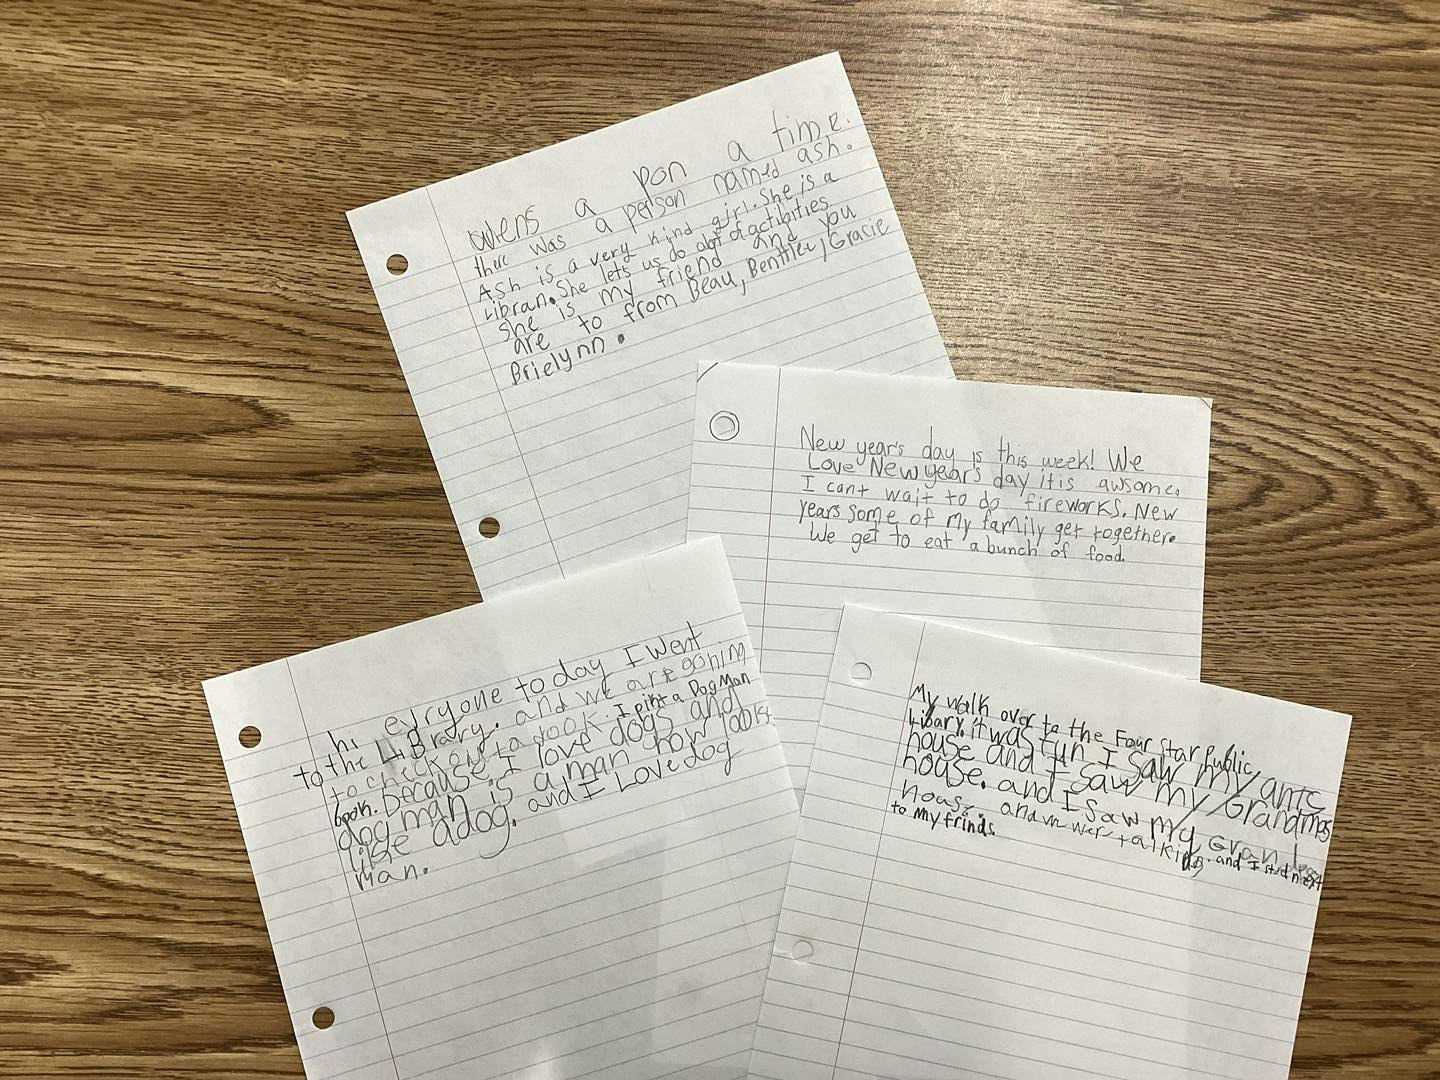 owens a pon a time.
there was a person named ash.
Ash is a very kind girl. She is a
Libran. She lets us do alot of actibities
She is my friend and you
are to from Beau, Benttlee, Gracie
Brielynn.
New year's day is this week! We
Love New year's day it is awsome.
I cant wait to do fireworks. New
years some of my family get together.
We get to eat a bunch of food.
hi evryone today I went
to the Library. and we are goning
to check out a book. I pikt a Dog Man
book. Because I love dogs and
dog man is a man how looks
like a dog. and I Love dog
man.
My walk over to the Four Star Public
Libary. it was fun I saw my antc
house and I saw my Grandmas
house. and I saw my Grandpas
house. and we were talking. and I stod next
to my frinds.